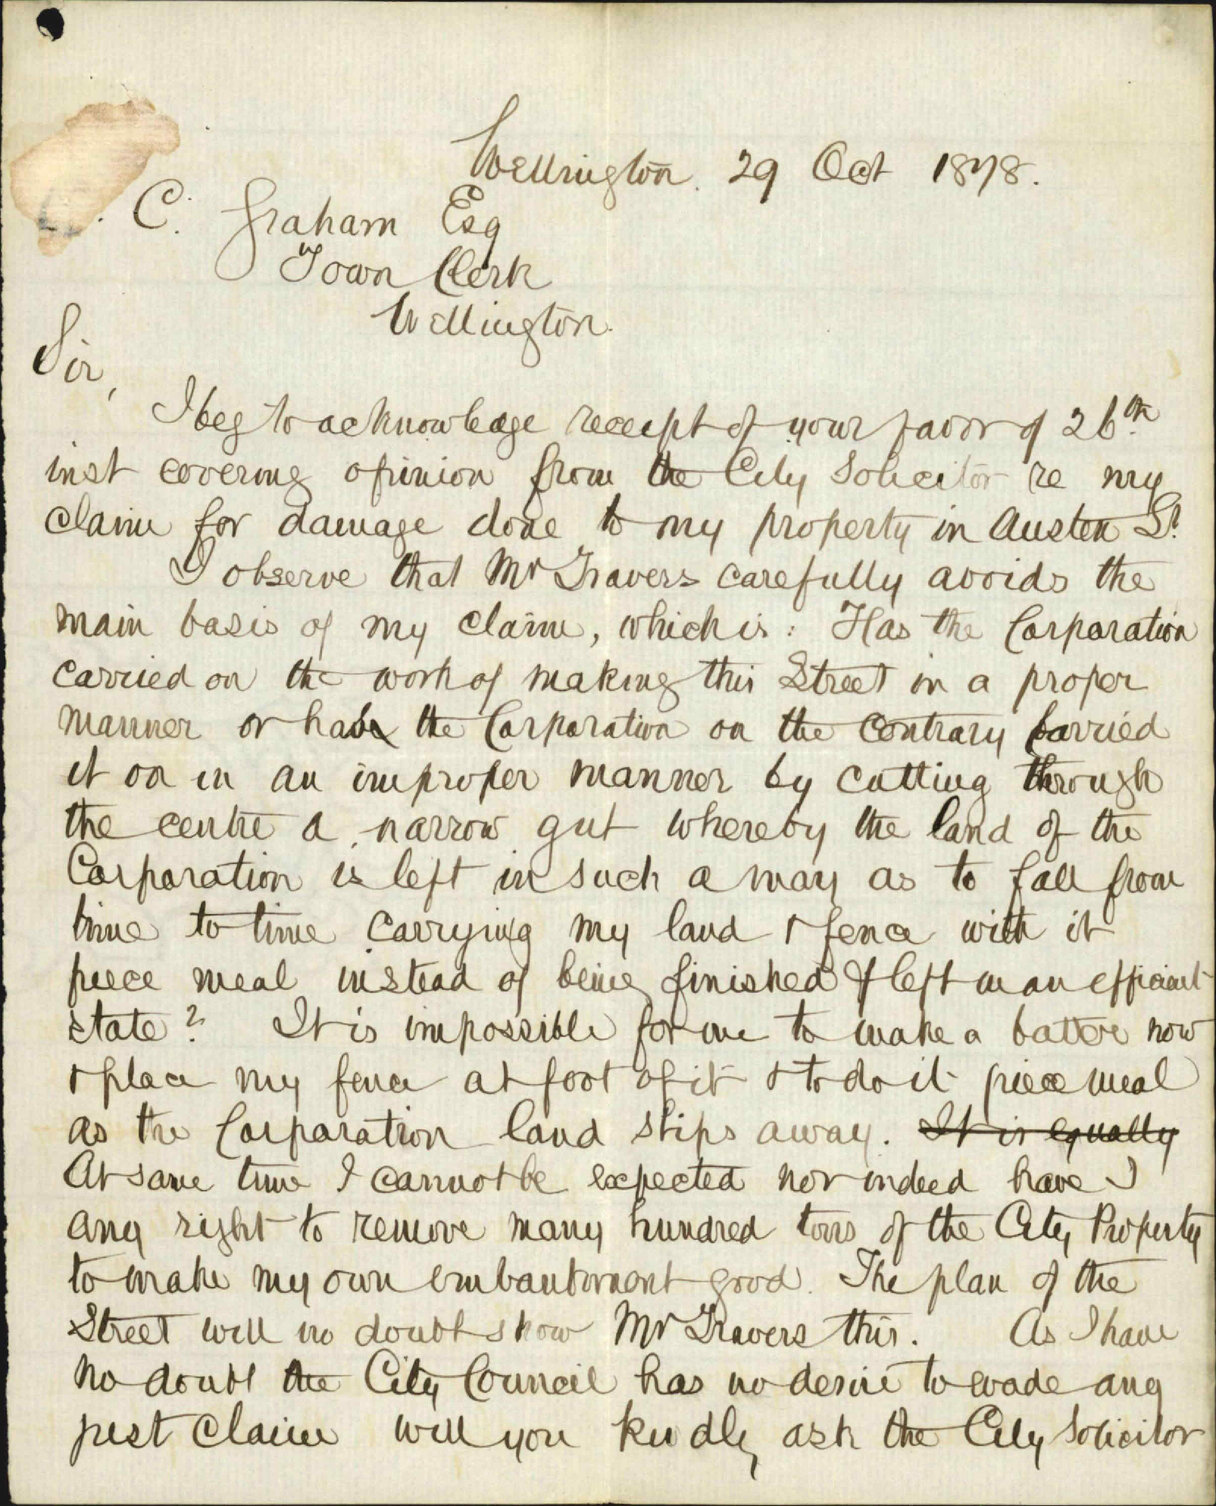 Wellington. 29 Oct 1878.
C. Graham Esq
Town Clerk
Wellington.
Sir,
I beg to acknowledge receipt of your favor of 26th
inst covering opinion from the City Solicitor re my
claim for damage done to my property in Austen St.
I observe that Mr Travers carefully avoids the
main basis of my claim, which is: Has the Corporation
carried on the work of making this Street in a proper
manner or have the Corporation on the contrary carried
it on in an improper manner by cutting through
the centre a narrow gut whereby the land of the
Corporation is left in such a way as to fall from
time to time carrying my land & fence with it
piece meal instead of being finished & left in an efficient
state? It is impossible for me to make a batter now
& place my fence at foot of it & to do it piece meal
as the Corporation land slips away. It is equally
At same time I cannot be expected nor indeed have I
any right to remove many hundred tons of the City Property
to make my own embankment good. The plan of the
Street will no doubt show Mr Travers this. As I have
no doubt the City Council has no desire to evade any
just claim will you kindly ask the City Solicitor